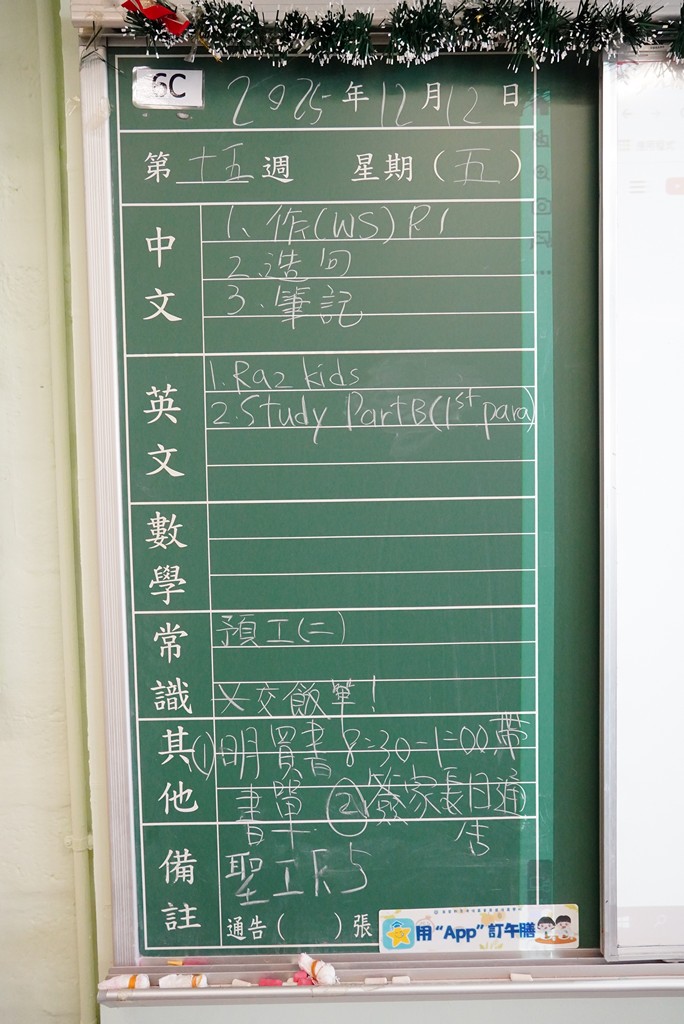 6C 2025年12月12日
第十五週 星期(五)
中文
1、作(WS)P.1
2.造句
3.筆記
英文
1.Raz kids
2.Study Part B(1st para)
數學
常識
預工(二)
交飯單!
其他
①明買書 8:30-1:00帶
書單 ②發家長日通
告
備註
聖工
通告( )張
用“App”訂午膳